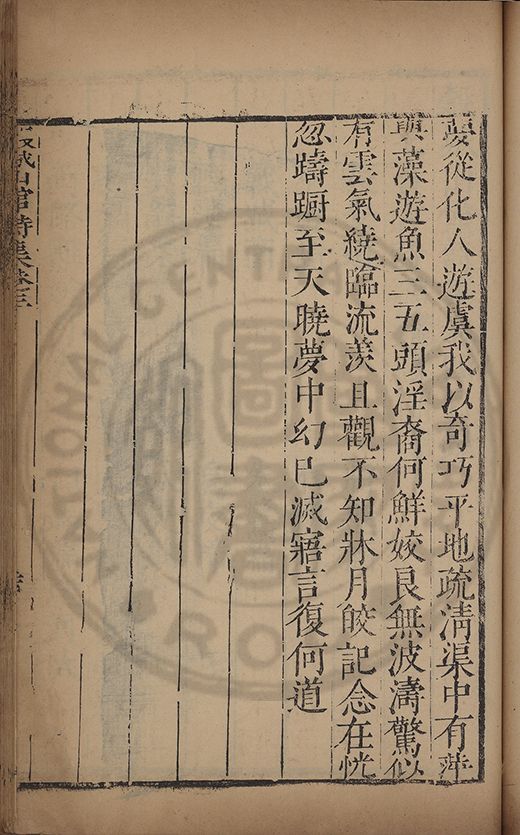 夢從化人遊虞我以奇巧平地疏清渠中有萍
與藻遊魚三五頭淫裔何鮮姣良無波濤驚似
有雲氣繞臨流羨且觀不知牀月皎記念在恍
忽躊蹰至天曉夢中幻已滅寤言復何道
山館詩集卷三